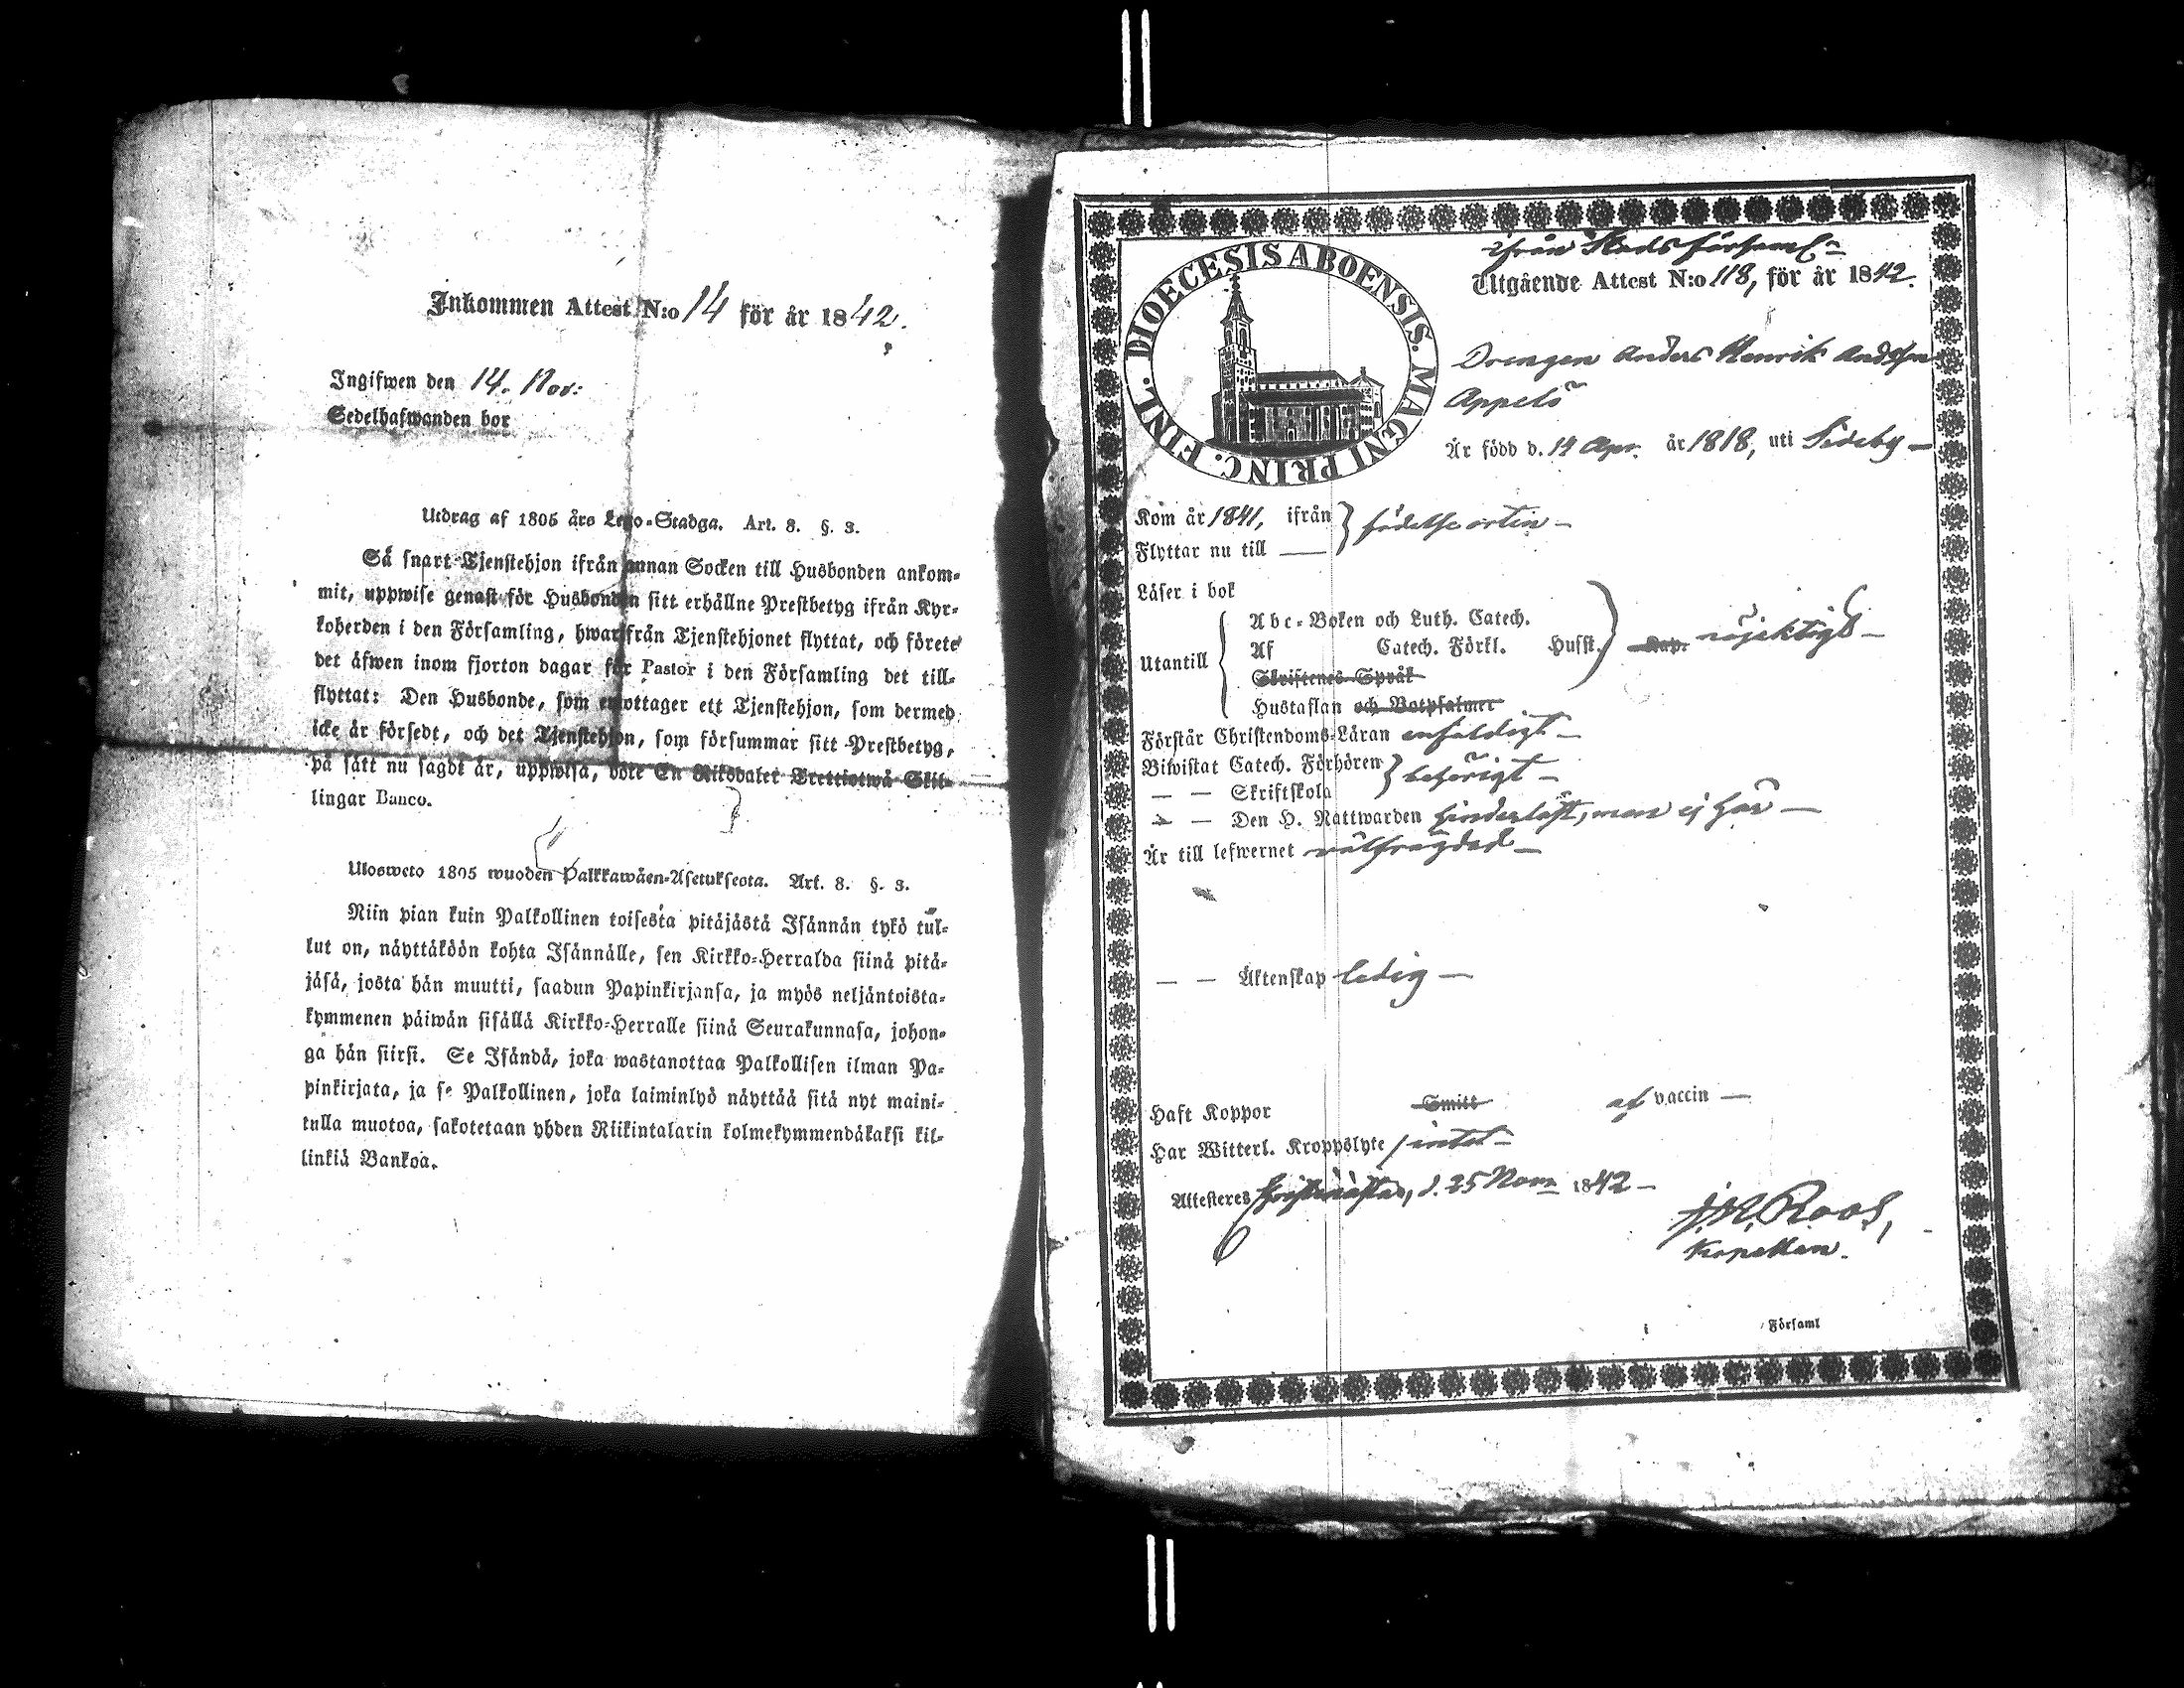 Inkommen Attest N:o 14 för år 1842.
Ingifwen den 14. Nov:
Sedelhafwanden bor
Utdrag af 1805 års Lego-Stadga. Art. 8. §. 3.
Så snart Tjenstehjon ifrån annan Socken till Husbonden ankom-
mit, uppwise genast för Husbonden sitt erhållne Prestbetyg ifrån Kyr-
koherden i den Församling, hwarifrån Tjenstehjonet flyttat, och förete
det äfwen inom fjorton dagar för Pastor i den Församling det till-
flyttat: Den Husbonde, som emottager ett Tjenstehjon, som dermed
icke är försedt, och det Tjenstehjon, som försummar sitt Prestbetyg,
på sätt nu sagdt är, uppwisa, böte En Riksdaler Trettiotwå Skil-
lingar Banco.
Ulosweto 1805 wuoden Palkkawäen-Asetuksesta. Art. 8. §. 3.
Niin pian kuin Palkollinen toisesta pitäjästä Isännän tykö tul-
lut on, näyttäköön kohta Isännälle, sen Kirkko-Herralda siinä pitä-
jäsä, josta hän muutti, saadun Papinkirjansa, ja myös neljäntoista-
kymmenen päiwän sisällä Kirkko-Herralle siinä Seurakunnasa, johon-
ga hän siirsi. Se Isändä, joka wastanottaa Palkollisen ilman Pa-
pinkirjata, ja se Palkollinen, joka laiminlyö näyttää sitä nyt maini-
tulla muotoa, sakotetaan yhden Riikintalarin kolmekymmendäkaksi kil-
linkiä Bankoa.
DIOECESIS ABOENSIS. MAGNI PRINC. FINL.
ifrån Stads församl:n
Utgående Attest N:o 118, för år 1842.
Drengen Anders Henrik Andsson
Appelö
Är född d. 14 Apr. år 1818, uti Sideby —
Kom år 1841, ifrån } födelse orten —
Flyttar nu till —
Läser i bok
Abc-Boken och Luth. Catech.
Utantill Af Catech. Förkl. Husst. Kap. nöjaktigt —
Skriftenes Språk
Hustaflan och Botpsalmer
Förstår Christendoms-Läran enfaldigt —
Biwistat Catech. Förhören } behörigt —
— — Skriftskola
— — Den H. Nattwarden hinderlöst, men ej här —
Är till lefwernet wälfrägdad —
— — Äktenskap ledig —
Haft Koppor Smitt af vaccin —
Har Witterl. Kroppslyte intet —
Attesteres Christinæstad, d. 25 Nov. 1842 —
Roos,
Kapellan.
i Församl